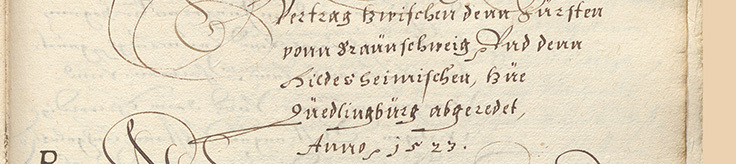 Vertrag zwischen denn Fürsten
vonn Braünschweig, Vnd denn
Hildesheimischen, züe
Qüedlingbürg abgeredet,
Anno, 1523.